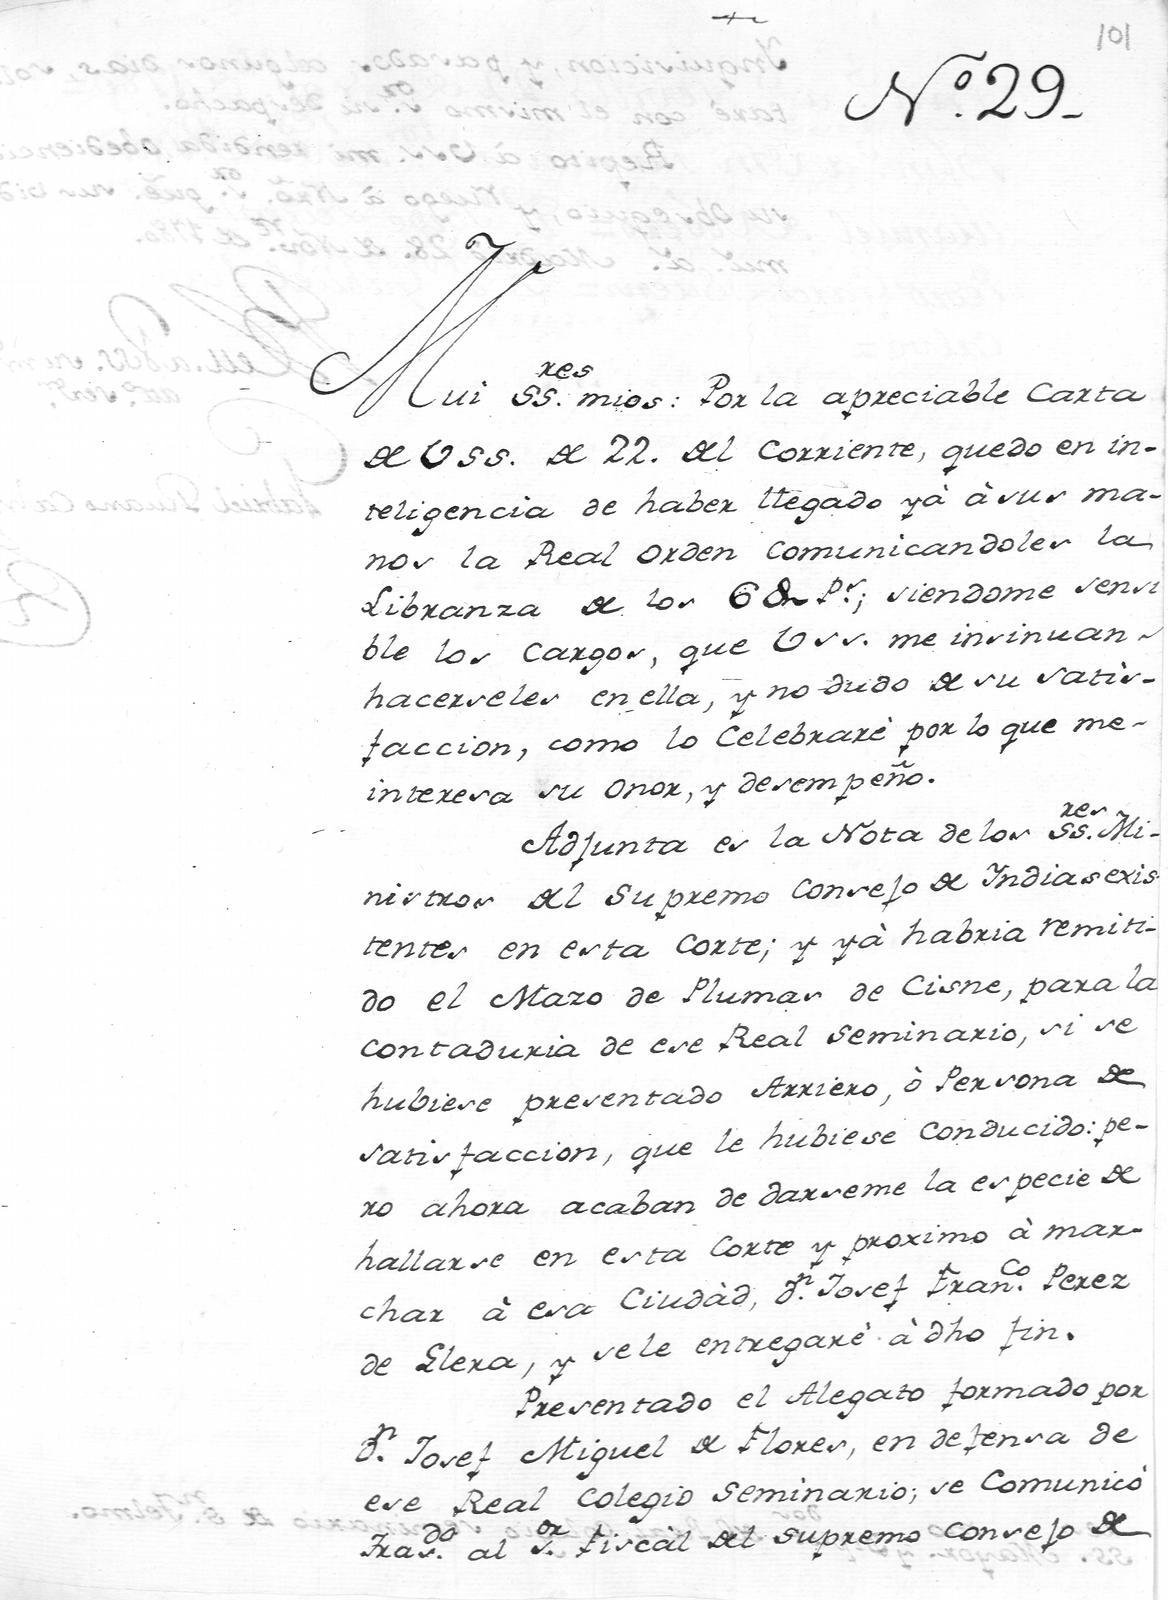 101
Nº. 29.
Mui SS.res mios: Por la apreciable Carta
de Vss. de 22. del Corriente, quedo en in-
teligencia de haber llegado yà à sus ma-
nos la Real Orden Comunicandoles la
Libranza de los 6 P.s; siendome sensi
ble los Cargos, que Vss. me insinuan
hacerseles en ella, y no dudo de su satis-
faccion, como lo Celebrarè por lo que me-
interesa su Onor, y desempeño.
Adjunta es la Nota de los SS.res Mi-
nistros del Supremo Consejo de Indias exis
tentes en esta Corte; y yà habria remiti-
do el Mazo de Plumas de Cisne, para la
Contaduria de ese Real Seminario, si se
hubiese presentado Arriero, ò Persona de
satisfaccion, que le hubiese Conducido: pe-
ro ahora acaban de darseme la especie de
hallarse en esta Corte y proximo à mar-
char à esa Ciudàd, d.n Josef Fran.co Perez
de Llera, y sele entregarè à dho fin.
Presentado el Alegato formado por
d.n Josef Miguel de Flores, en defensa de
ese Real Colegio Seminario; se Comunicó
Tras.do al S.or Fiscàl del Supremo Consejo de